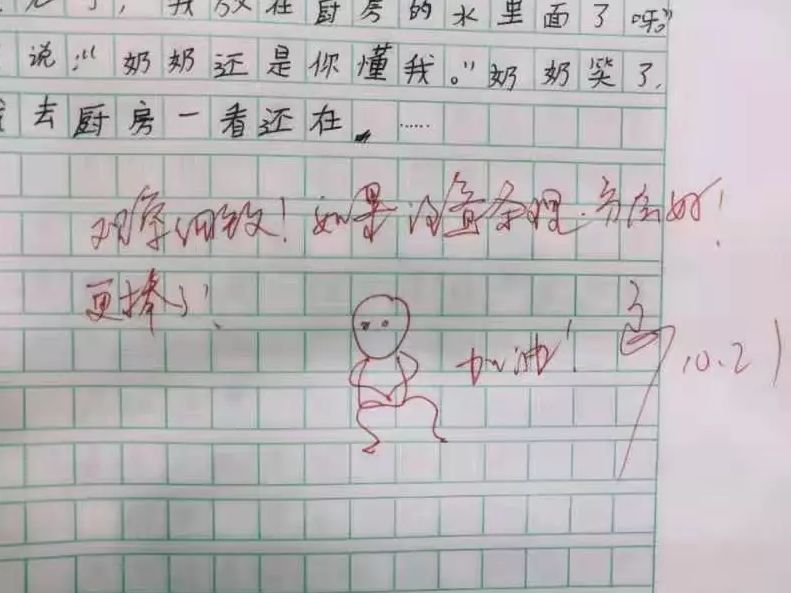 我放在厨房的水里面了呀。”
说:“奶奶还是你懂我。”奶奶笑了.
去厨房一看还在,……
观察细致!如果注意条理,分层好!
更棒了!
加油!
10.21